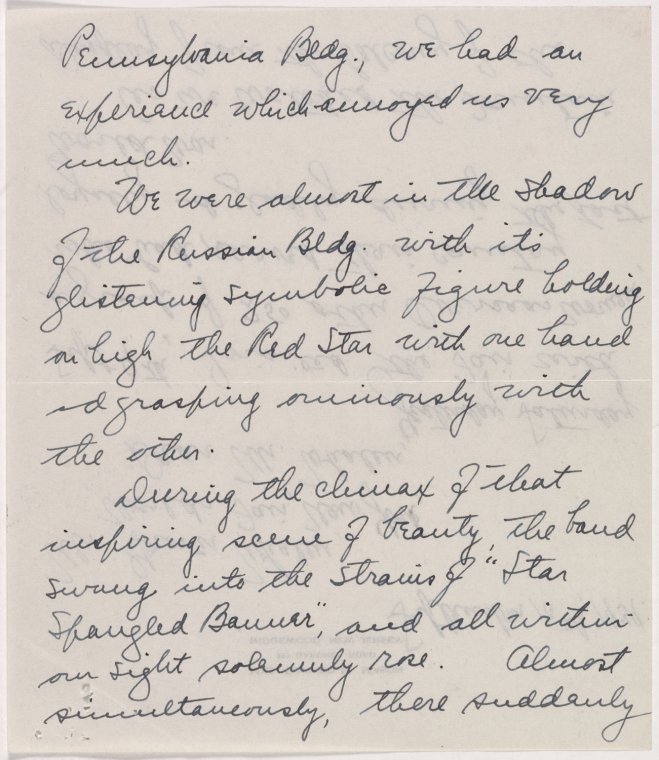 Pennsylvania Bldg., we had an
experience which annoyed us very
much.
We were almost in the shadow
of the Russian Bldg. with its
glistening symbolic figure holding
on high the Red Star with one hand
and grasping ominously with
the other.
During the climax of that
inspiring scene of beauty, the band
swung into the strains of "Star
Spangled Banner" and all within
our sight solemnly rose. Almost
simultaneously, there suddenly